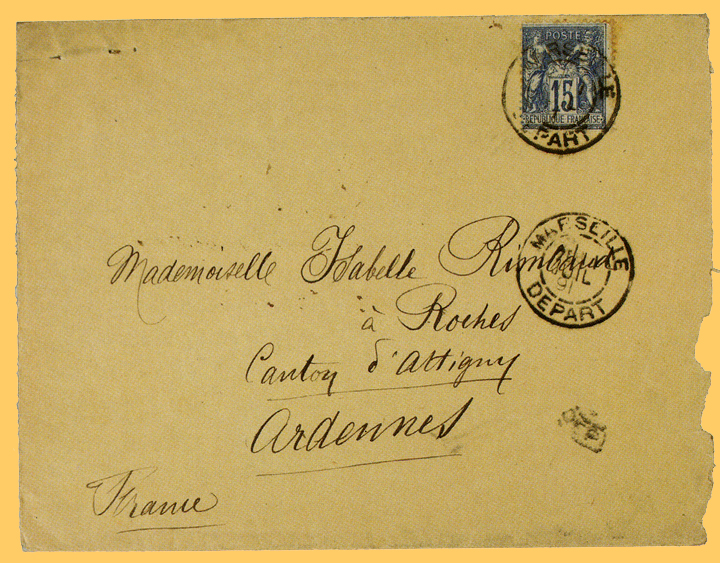 POSTE
15
REPUBLIQUE FRANÇAISE
MARSEILLE
DEPART
Mademoiselle Isabelle Rimbaud
MARSEILLE
JUIL
91
DEPART
à Roches
Canton d'Attigny
Ardennes
France